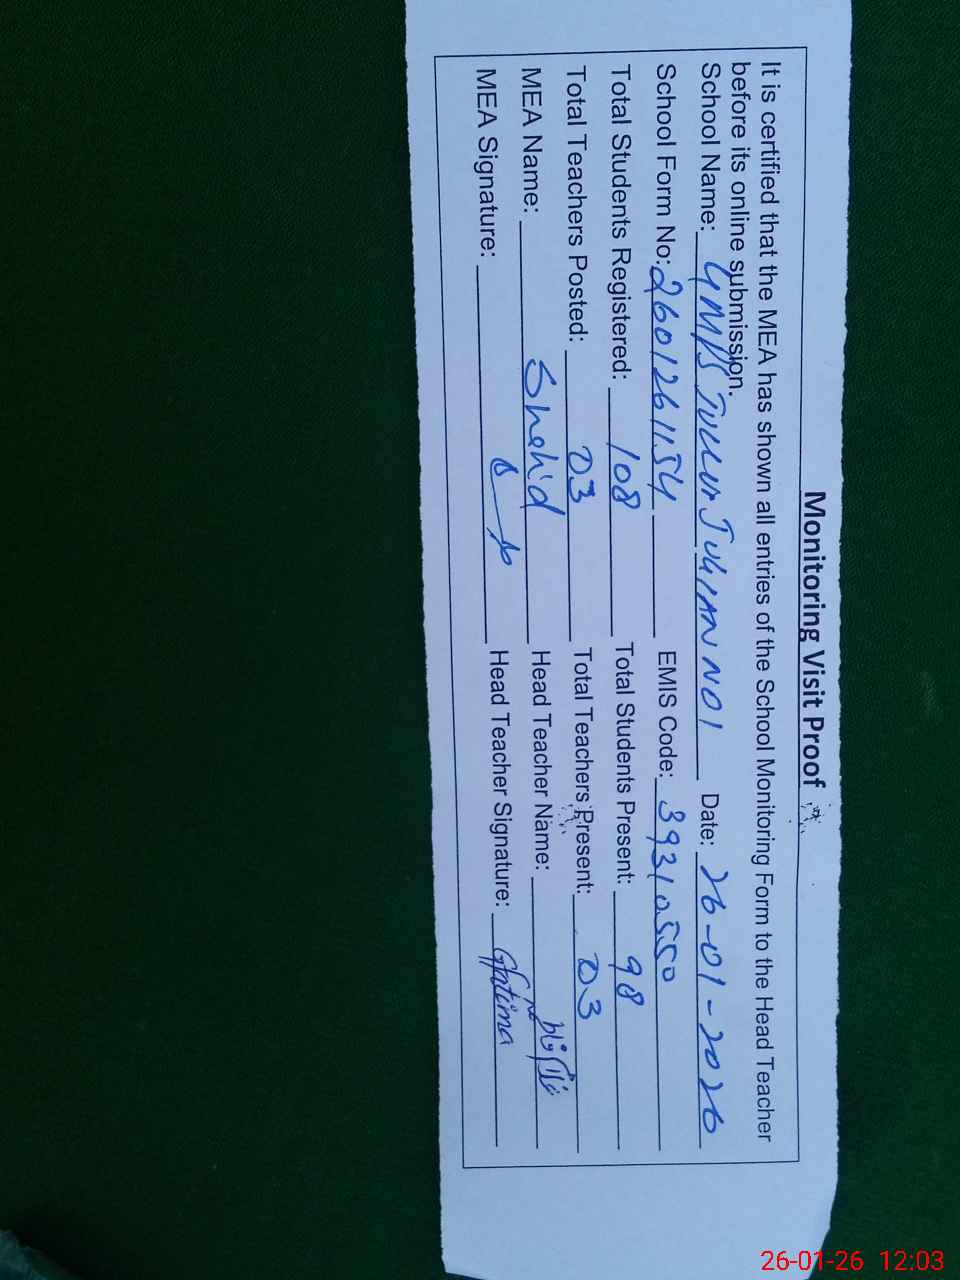 Monitoring Visit Proof
It is certified that the MEA has shown all entries of the School Monitoring Form to the Head Teacher
before its online submission.
School Name: GMPS JULLUR JUKIAN NO1 Date: 26-01-2026
School Form No: 2601261154 EMIS Code: 39310550
Total Students Registered: 108 Total Students Present: 98
Total Teachers Posted: 03 Total Teachers Present: 03
MEA Name: Shahid Head Teacher Name:
MEA Signature: Head Teacher Signature: Gfatima
26-01-26 12:03